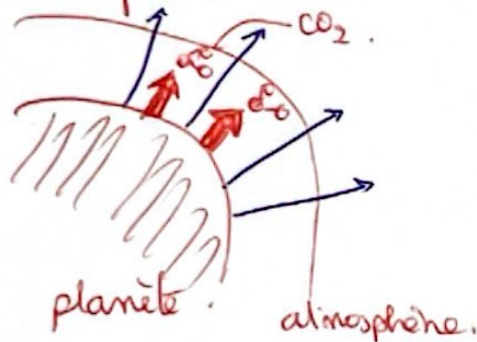 CO₂.
planète.
atmosphère.